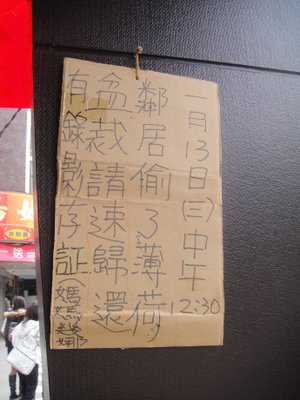 一月13日(三)中午12:30
鄰居偷了薄荷
盆裁請速歸還
有錄影存証